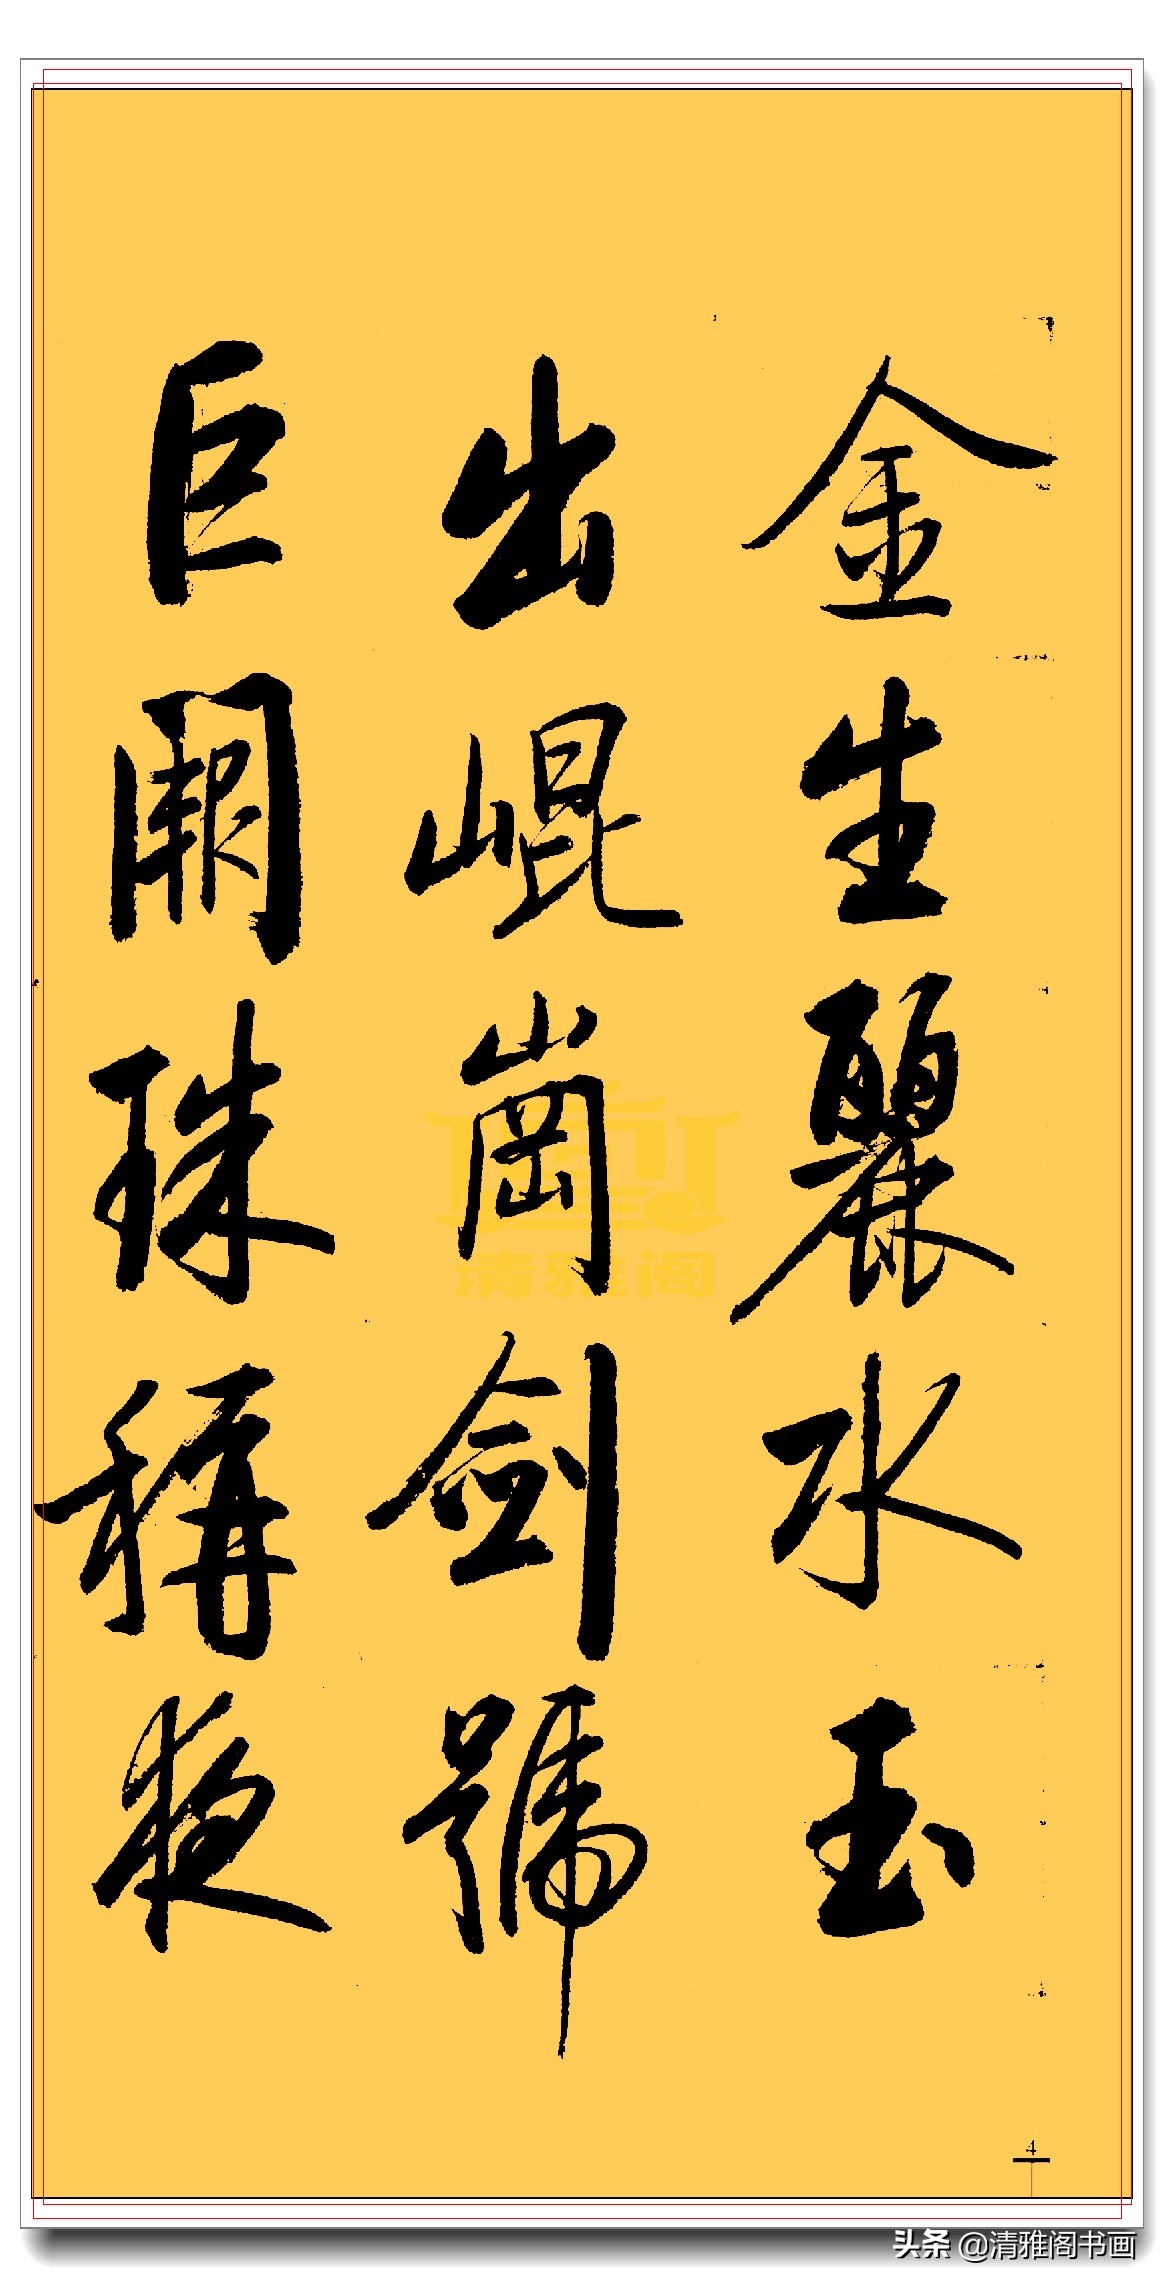 金生麗水玉
出崐崗剑號
巨闕珠稱夜
清雅阁
4
头条 @清雅阁书画